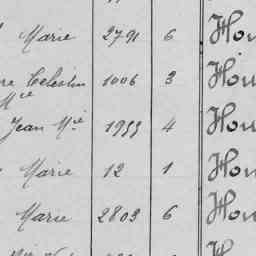 Marie 2791 6 Hou
re Celestin 1006 3 Hou
Mie
Jean Mie 1955 4 Hou
Marie 12 1 Hou
Marie 2803 6 Hou